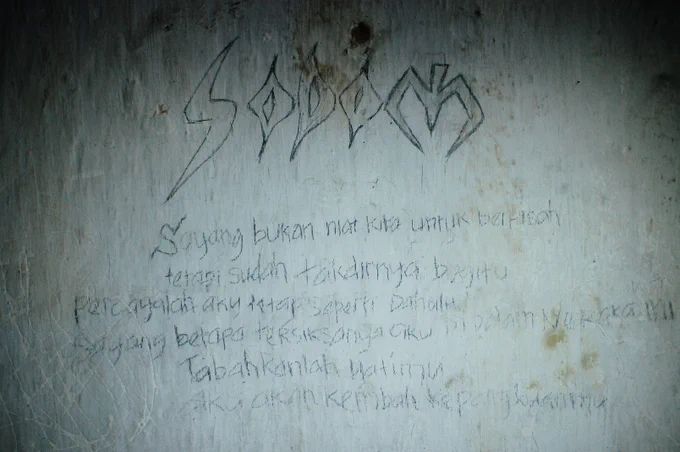 SODOM
Sayang bukan niat kita untuk berpisah
tetapi sudah takdirnya begitu
percayalah aku tetap seperti Dahulu
Sayang betapa tersiksanya aku Di Dalam Neraka ini
Tabahkanlah Hatimu
Aku akan kembali kepangkuanmu